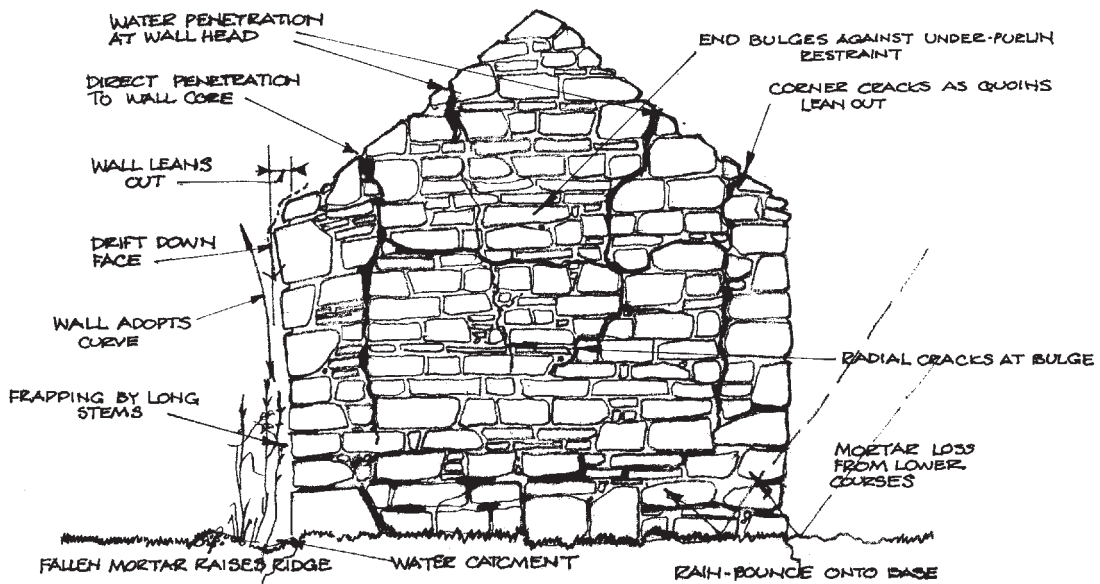 WATER PENETRATION
AT WALL HEAD
DIRECT PENETRATION
TO WALL CORE
WALL LEANS
OUT
DRIFT DOWN
FACE
WALL ADOPTS
CURVE
FRAPPING BY LONG
STEMS
FALLEN MORTAR RAISES RIDGE
WATER CATCMENT
END BULGES AGAINST UNDER-PURLIN
RESTRAINT
CORNER CRACKS AS QUOINS
LEAN OUT
RADIAL CRACKS AT BULGE
MORTAR LOSS
FROM LOWER
COURSES
RAIN-BOUNCE ONTO BASE